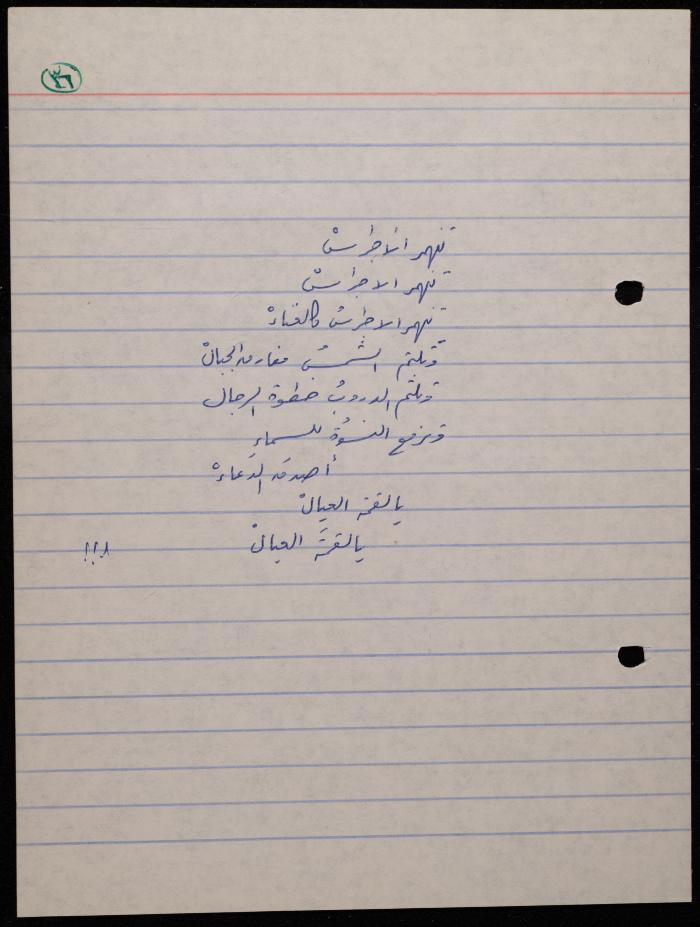 تنهمر الأجراسْ
تنهمر الاجراسْ
تنهمر الاجراسُ كالغناءْ
وتلثم الشمسُ مفارق الجبالْ
وتلثم الدروبُ خطوة الرجال
وترفع النسوَةُ للسماءِ
أصدقَ الدَعاءْ
يا لقمة العيالْ
يا لقمَّة العيالْ !!!